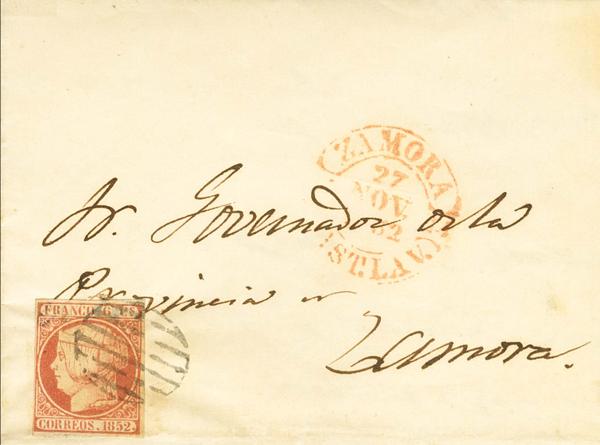 ZAMORA
27
NOV.
52
CAST. LA V.
Sr. Governador de la
Provincia de
Zamora.
FRANCO 6 Cs
CORREOS. 1852.